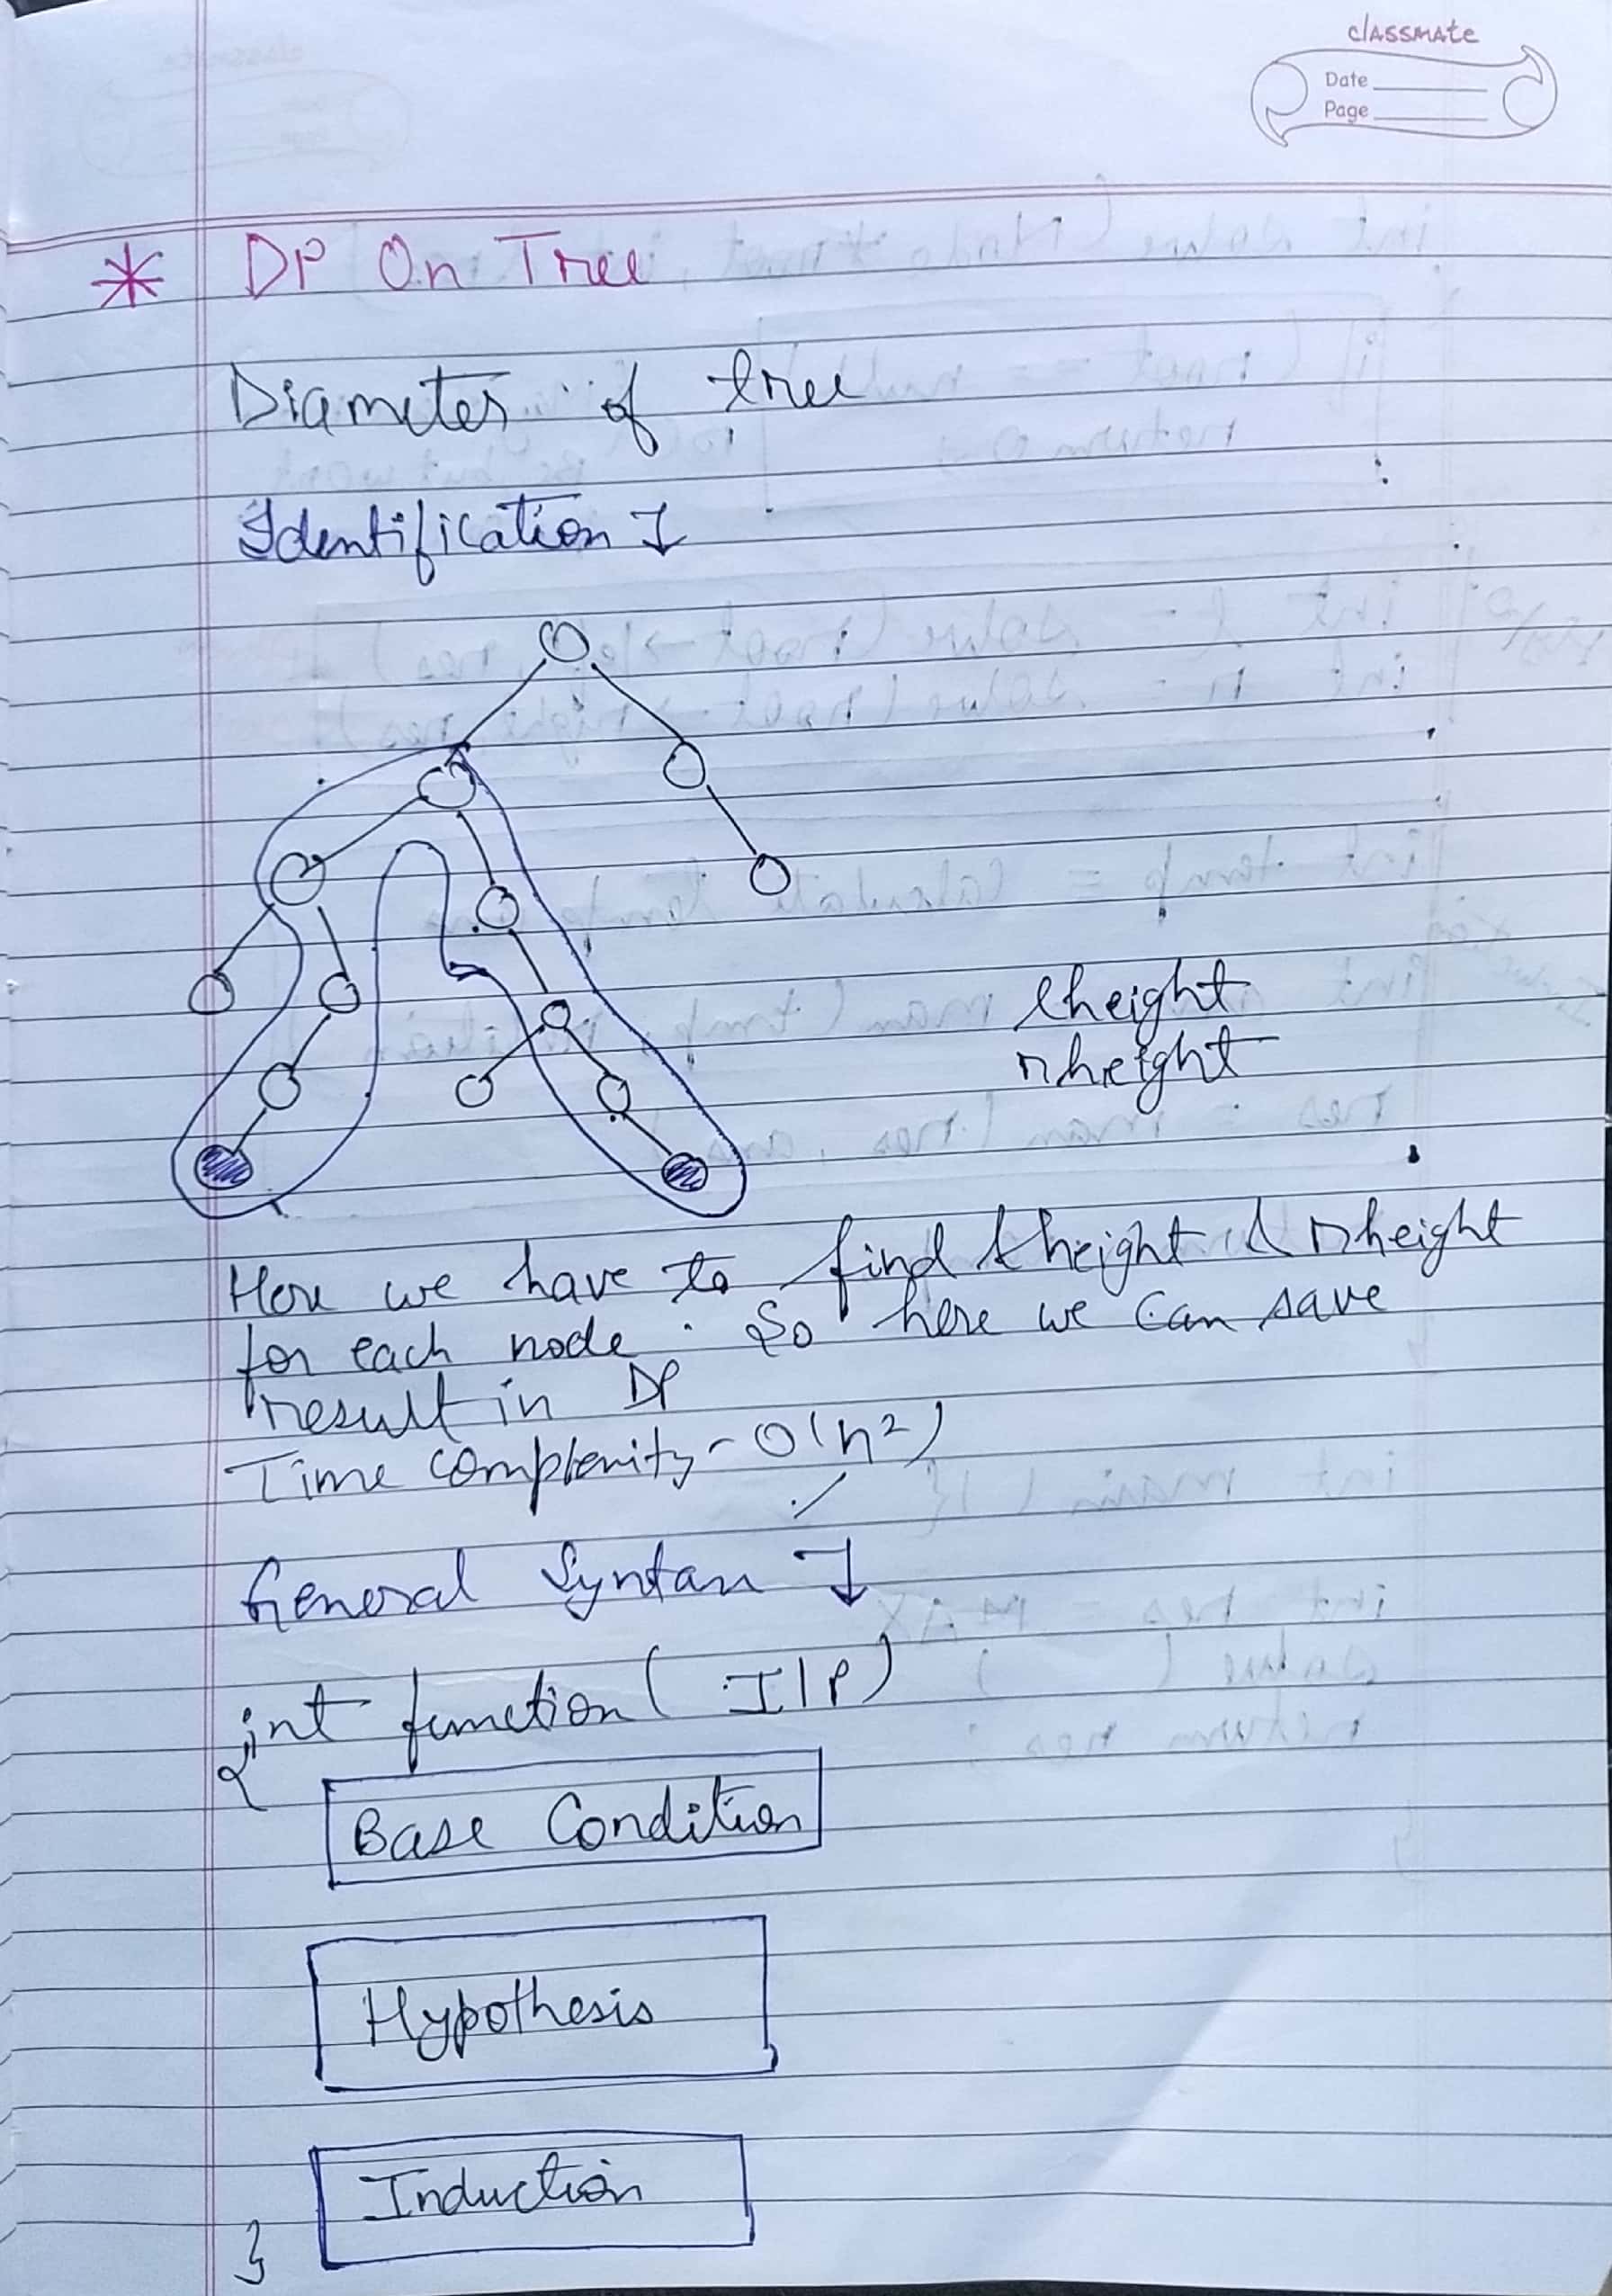 classmate
Date
Page
* DP On Tree
Diameter of tree
Identification ↓
lheight
rheight
Here we have to find lheight & rheight
for each node. So here we can save
result in DP
Time complexity - O(n²)
General Syntax ↓
int function( I/P)
{
Base Condition
Hypothesis
Induction
}